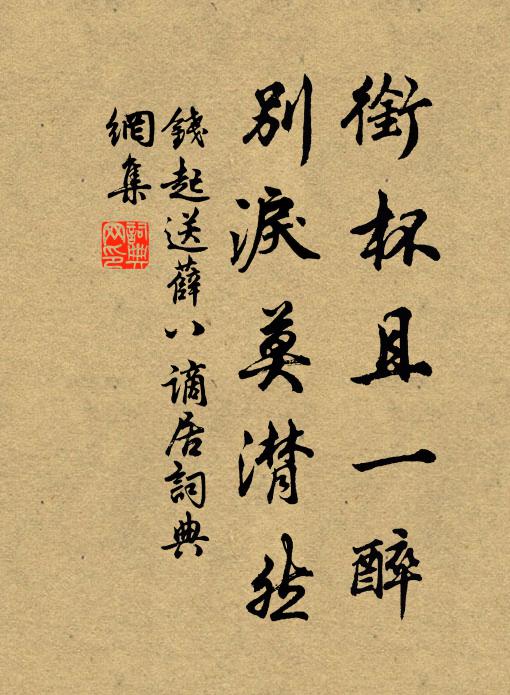 銜杯且一醉
別淚莫潸然
錢起送薛八謫居詞典
網集
詞典網印